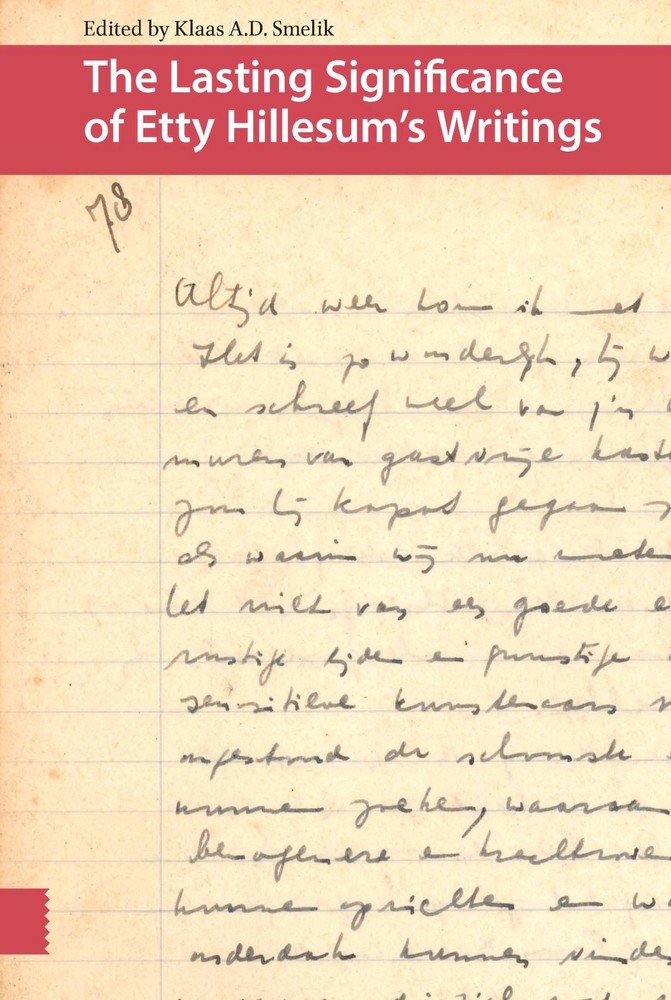 Edited by Klaas A.D. Smelik
The Lasting Significance
of Etty Hillesum's Writings
78
Altijd weer kom ik met
Het is zo wonderlijk, hij w
en schreef veel van z'n
muren van gastvrije kaste
zou hij kapot gegaan z
als waarin wij nu moeten
het niet van een goede e
rustige tijden en gunstige
sensitieve kunstenaars r
ongestoord de schoonste
kunnen zoeken, waaraan
bewogener en krachtrove
kunnen oprichten en wa
onderdak kunnen vinden